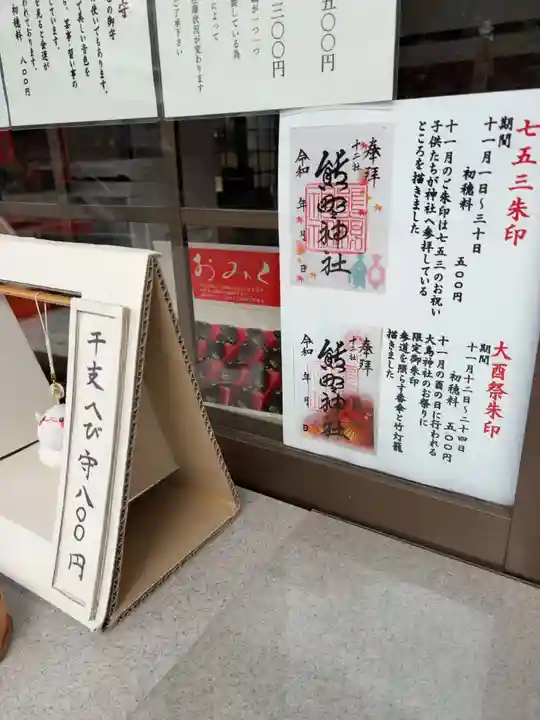 七五三朱印
期間
十一月一日〜三十日
初穂料　五〇〇円
十一月のご朱印は七五三のお祝い
子供たちが神社へ参拝している
ところを描きました
奉拝
十二社
熊野神社
令和　年　月　日
大酉祭朱印
期間
十一月十二日〜二十四日
初穂料　五〇〇円
十一月の酉の日に行われる
大鳥神社のお祭りに
限定御朱印
参道を照らす番傘と竹灯籠
描きました
奉拝
十二社
熊野神社
令和　年　月　日
五〇〇円
二〇〇円
が一つ一つ
している為
によって
在庫状況が変わります
ご了承下さい
守
この御守
で美しい音色を
初穂料　八〇〇円
おみくじ
干支へび守八〇〇円